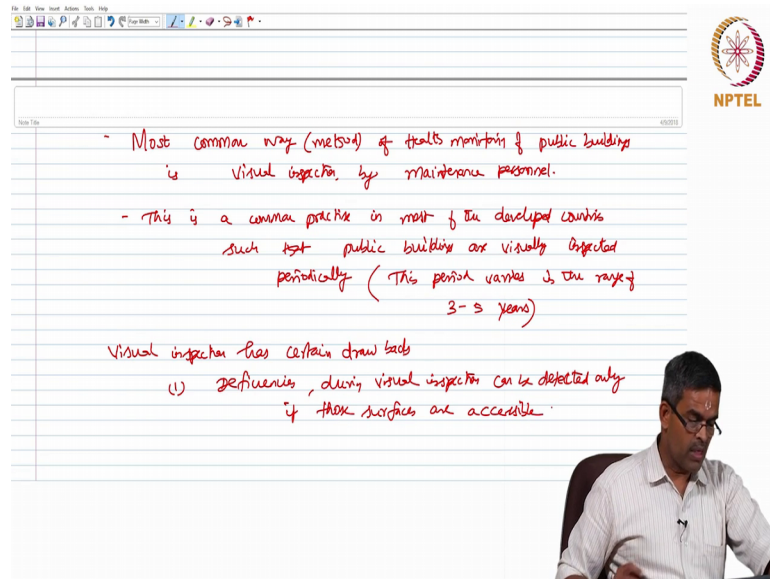 File Edit View Insert Actions Tools Help
Page Width
NPTEL
Note Title
4/9/2018
- Most common way (method) of Health monitoring of public buildings
is visual inspection, by maintenance personnel.
- This is a common practise in most of the developed countries
such that public buildings are visually inspected
periodically (This period varies in the range of
3-5 years)
Visual inspection has certain draw backs
(1) Deficiencies, during visual inspection can be detected only
if those surfaces are accessible.